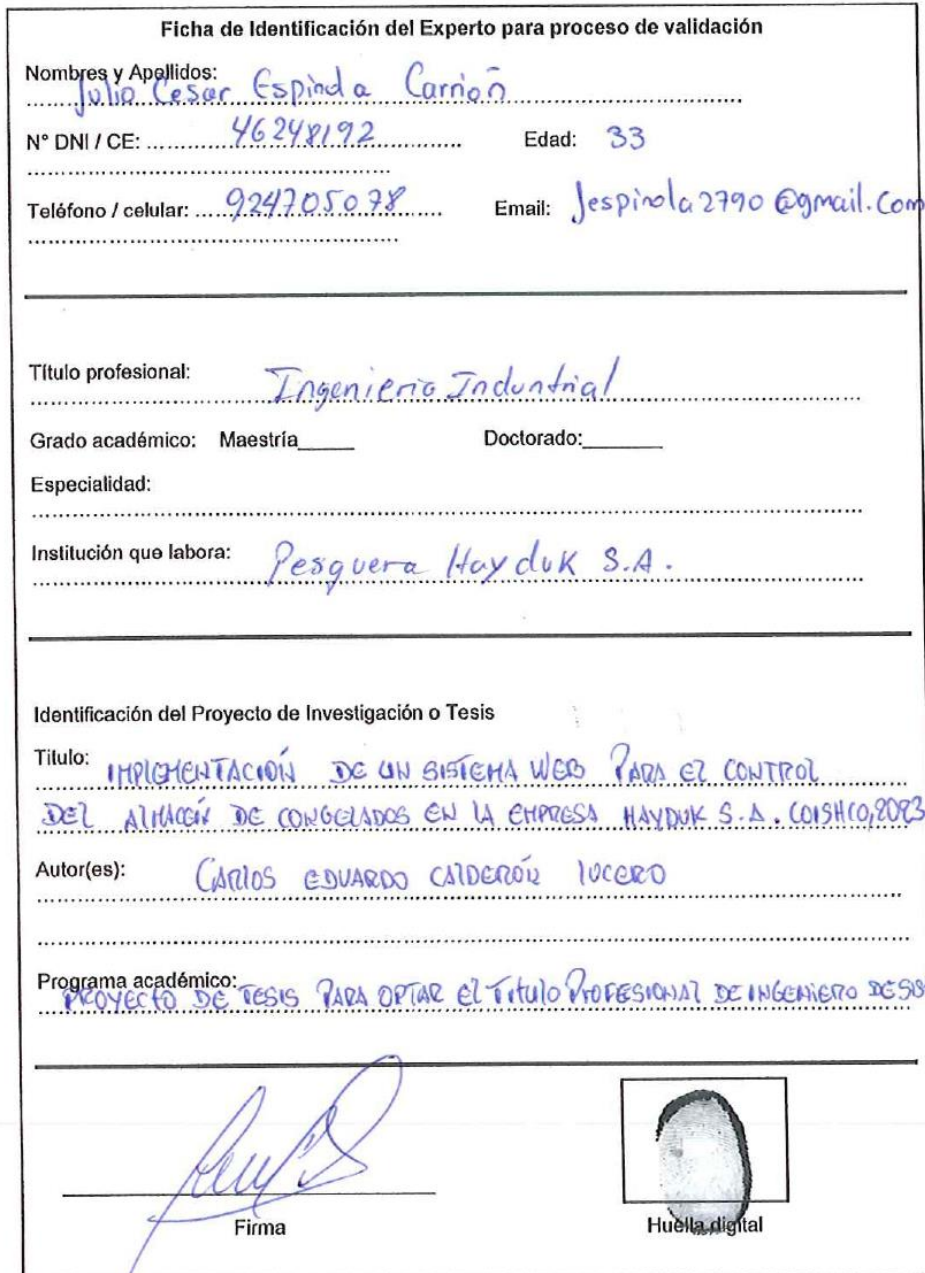 Ficha de Identificación del Experto para proceso de validación
Nombres y Apellidos:
Julio Cesar Espinola Carrión
N° DNI / CE: 46248192 Edad: 33
Teléfono / celular: 924705078 Email: Jespinola2790@gmail.com
Título profesional: Ingenieria Industrial
Grado académico: Maestría_____ Doctorado:_______
Especialidad:
Institución que labora: Pesquera Hayduk S.A.
Identificación del Proyecto de Investigación o Tesis
Titulo: IMPLEMENTACIÓN DE UN SISTEMA WEB PARA EL CONTROL
DEL ALMACÉN DE CONGELADOS EN LA EMPRESA HAYDUK S.A. COISHCO, 2023
Autor(es): CARLOS EDUARDO CALDERÓN LUCERO
Programa académico:
PROYECTO DE TESIS PARA OPTAR El Titulo PROFESIONAL DE INGENIERO DE SIS
Firma
Huella digital